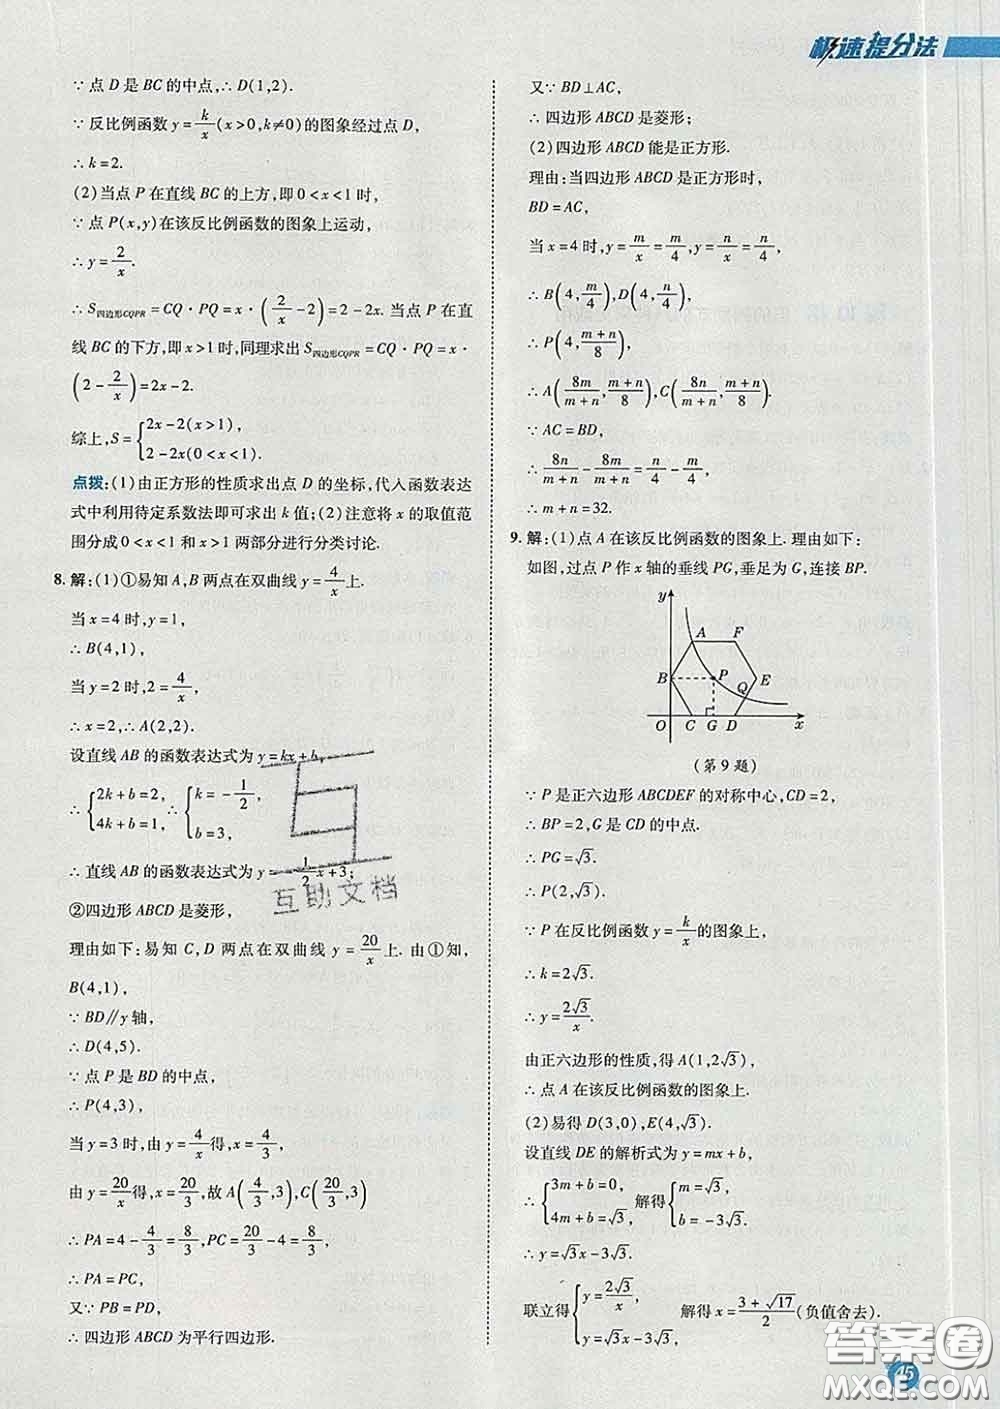 极速提分法
∵点 D 是 BC 的中点,∴D(1,2).
∵反比例函数 y=k/x(x>0,k≠0)的图象经过点 D,
∴k=2.
(2)当点 P 在直线 BC 的上方,即 0<x<1 时,
∵点 P(x,y)在该反比例函数的图象上运动,
∴y=2/x.
∴S四边形CQPR=CQ·PQ=x·(2/x-2)=2-2x. 当点 P 在直
线 BC 的下方,即 x>1 时,同理求出 S四边形CQPR=CQ·PQ=x·
(2-2/x)=2x-2.
综上,S={2x-2(x>1),
2-2x(0<x<1).
点拨:(1)由正方形的性质求出点 D 的坐标,代入函数表达
式中利用待定系数法即可求出 k 值;(2)注意将 x 的取值范
围分成 0<x<1 和 x>1 两部分进行分类讨论.
8. 解:(1)①易知 A,B 两点在双曲线 y=4/x 上.
当 x=4 时,y=1,
∴B(4,1),
当 y=2 时,2=4/x,
∴x=2,∴A(2,2).
设直线 AB 的函数表达式为 y=kx+b,
∴{2k+b=2, ∴{k=-1/2,
4k+b=1, b=3,
∴直线 AB 的函数表达式为 y=-1/2x+3;
②四边形 ABCD 是菱形,
理由如下:易知 C,D 两点在双曲线 y=20/x 上. 由①知,
B(4,1),
∵BD∥y 轴,
∴D(4,5).
∵点 P 是 BD 的中点,
∴P(4,3),
当 y=3 时,由 y=4/x 得,x=4/3,
由 y=20/x 得,x=20/3,故 A(4/3,3),C(20/3,3)
∴PA=4-4/3=8/3,PC=20/3-4=8/3,
∴PA=PC,
又∵PB=PD,
∴四边形 ABCD 为平行四边形.
又∵BD⊥AC,
∴四边形 ABCD 是菱形;
(2)四边形 ABCD 能是正方形.
理由:当四边形 ABCD 是正方形时,
BD=AC,
当 x=4 时,y=m/x=m/4,y=n/x=n/4,
∴B(4,m/4),D(4,n/4),
∴P(4,(m+n)/8),
∴A(8m/(m+n),(m+n)/8),C(8n/(m+n),(m+n)/8).
∵AC=BD,
∴8n/(m+n)-8m/(m+n)=n/4-m/4,
∴m+n=32.
9. 解:(1)点 A 在该反比例函数的图象上. 理由如下:
如图,过点 P 作 x 轴的垂线 PG,垂足为 G,连接 BP.
y
A F
B P E
Q
O C G D x
(第 9 题)
∵P 是正六边形 ABCDEF 的对称中心,CD=2,
∴BP=2,G 是 CD 的中点.
∴PG=√3.
∴P(2,√3).
∵P 在反比例函数 y=k/x 的图象上,
∴k=2√3.
∴y=2√3/x.
由正六边形的性质,得 A(1,2√3),
∴点 A 在该反比例函数的图象上.
(2)易得 D(3,0),E(4,√3).
设直线 DE 的解析式为 y=mx+b,
∴{3m+b=0, 解得{m=√3,
4m+b=√3, b=-3√3.
∴y=√3x-3√3.
联立得{y=2√3/x, 解得 x=(3+√17)/2(负值舍去).
y=√3x-3√3,
互助文档
答案圈
MXQE.COM
45